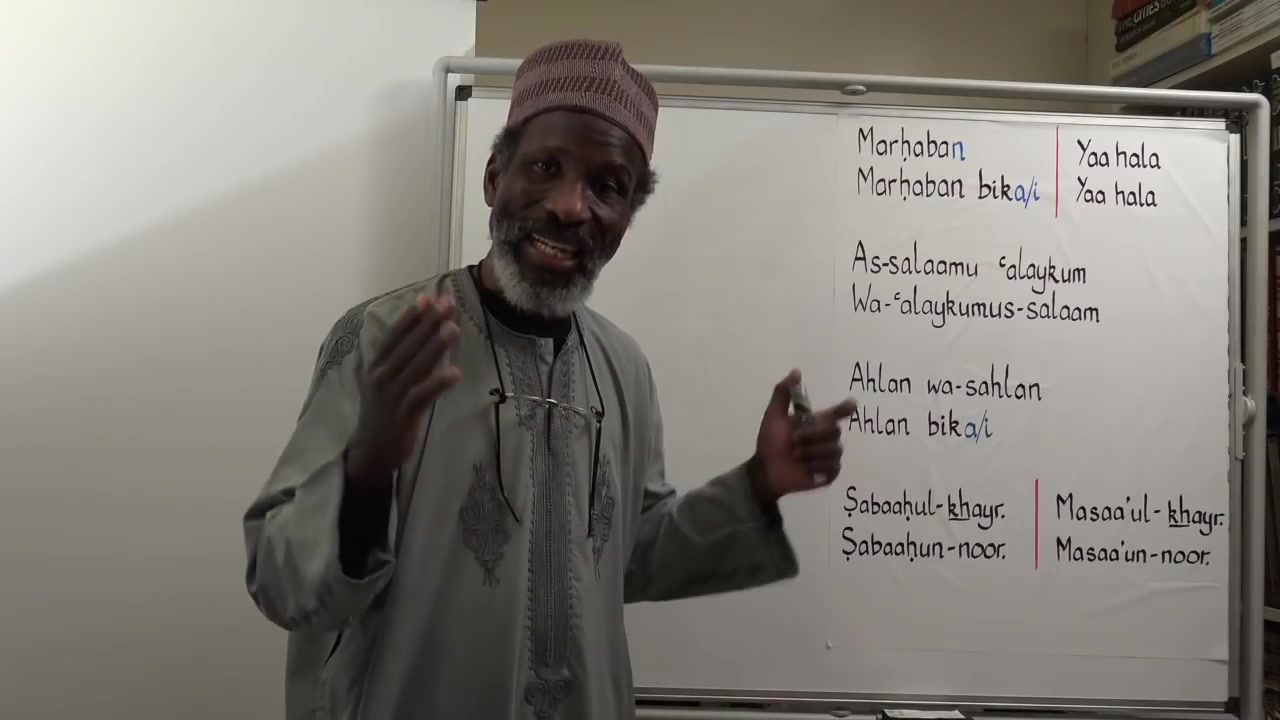 Marḥaban
Marḥaban bika/i
Yaa hala
Yaa hala
As-salaamu ʿalaykum
Wa-ʿalaykumus-salaam
Ahlan wa-sahlan
Ahlan bika/i
Ṣabaaḥul-khayr.
Ṣabaaḥun-noor.
Masaa'ul-khayr.
Masaa'un-noor.
THE CITIES